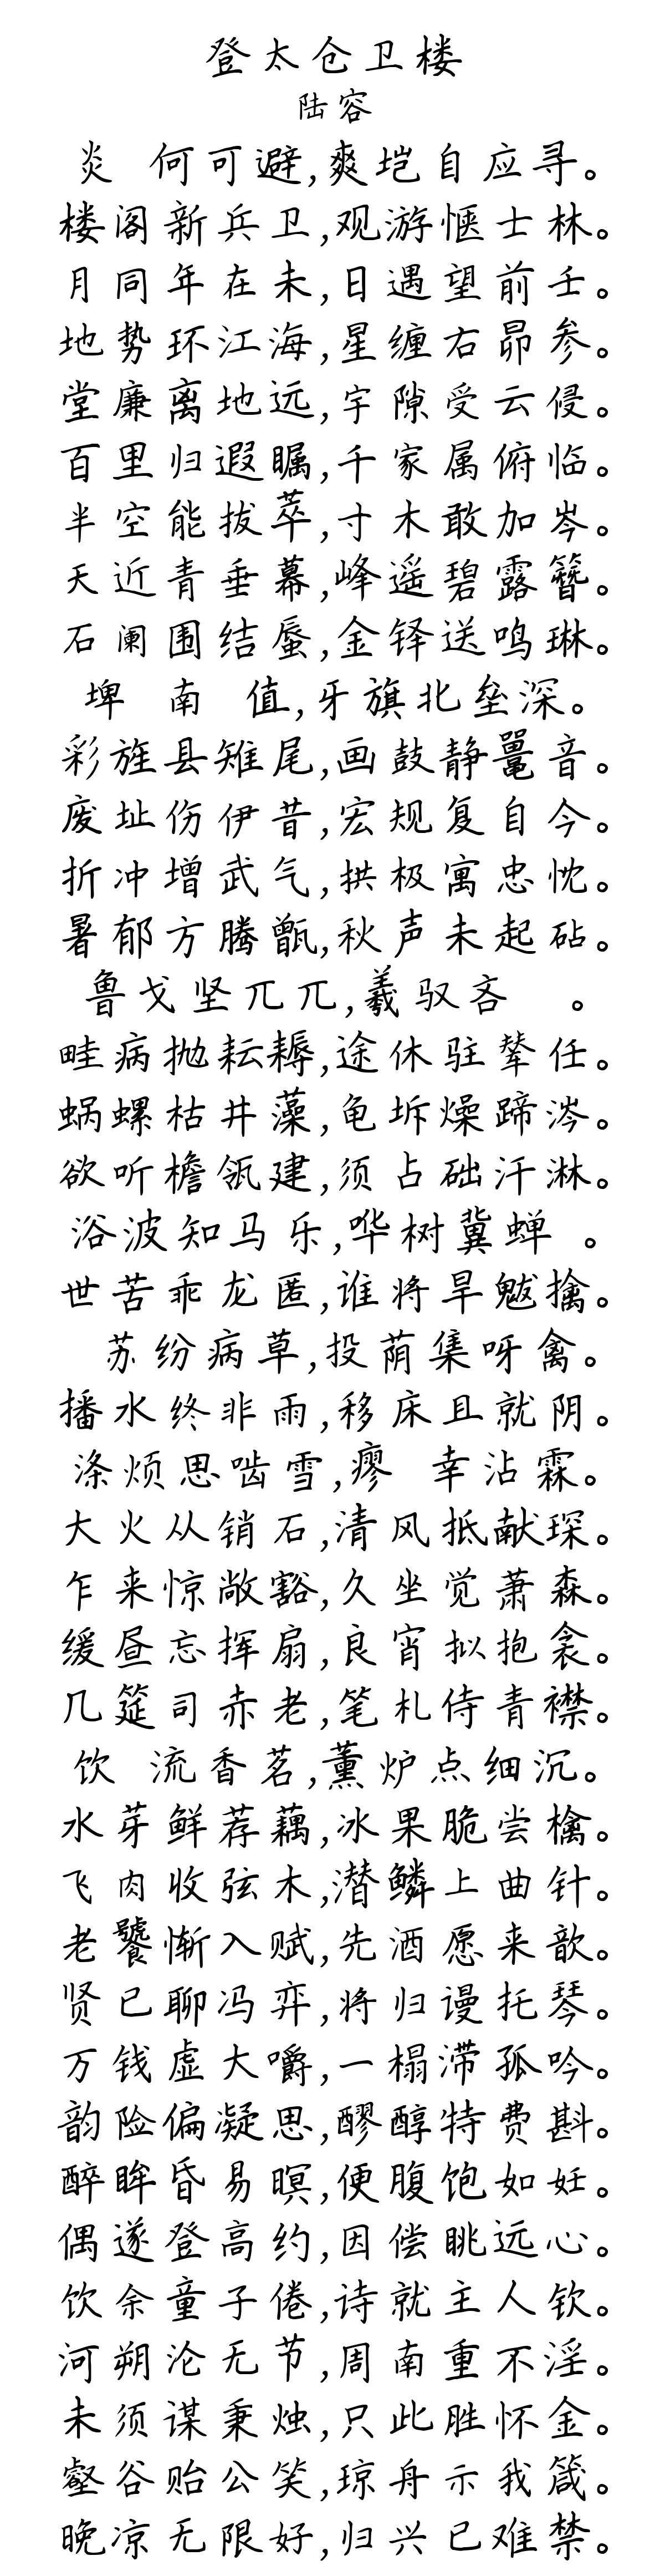 登太仓卫楼
陆容
炎 何可避,爽垲自应寻。
楼阁新兵卫,观游惬士林。
月同年在未,日遇望前壬。
地势环江海,星缠右昴参。
堂廉离地远,宇隙受云侵。
百里归遐瞩,千家属俯临。
半空能拔萃,寸木敢加岑。
天近青垂幕,峰遥碧露簪。
石阑围结蜃,金铎送鸣琳。
埤 南 值,牙旗北垒深。
彩旌县雉尾,画鼓静鼍音。
废址伤伊昔,宏规复自今。
折冲增武气,拱极寓忠忱。
暑郁方腾甑,秋声未起砧。
鲁戈坚兀兀,羲驭吝 。
畦病抛耘耨,途休驻辇任。
蜗螺枯井藻,龟坼燥蹄涔。
欲听檐瓴建,须占础汗淋。
浴波知马乐,哗树冀蝉 。
世苦乖龙匿,谁将旱魃擒。
苏纷病草,投荫集呀禽。
播水终非雨,移床且就阴。
涤烦思啮雪,瘳 幸沾霖。
大火从销石,清风抵献琛。
乍来惊敞豁,久坐觉萧森。
缓昼忘挥扇,良宵拟抱衾。
几筵司赤老,笔札侍青襟。
饮 流香茗,薰炉点细沉。
水芽鲜荐藕,冰果脆尝檎。
飞肉收弦木,潜鳞上曲针。
老饕惭入赋,先酒愿来歆。
贤已聊冯弈,将归谩托琴。
万钱虚大嚼,一榻滞孤吟。
韵险偏凝思,醪醇特费斟。
醉眸昏易暝,便腹饱如妊。
偶遂登高约,因偿眺远心。
饮余童子倦,诗就主人钦。
河朔沦无节,周南重不淫。
未须谋秉烛,只此胜怀金。
壑谷贻公笑,琼舟示我箴。
晚凉无限好,归兴已难禁。